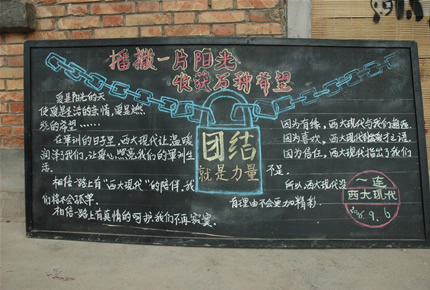 播撒一片阳光
收获万种希望
爱是阳光的天
使爱是生活的亲情,爱是燃
烧的希望……
在军训的日子里,西大现代让温暖
润泽我们,让爱心照亮我们的军训生
活。
相信一路上有"西大现代"的陪伴,我
们将不会孤单。
相信一路上有真情的呵护我们不再寂寞。
团结
就是力量
因为有缘,西大现代与我们相逢
因为喜欢,西大现代
因为信任,西大现代给了我们
不是。
所以西大现代没
有理由不会更加精彩
一连
西大现代
9.6